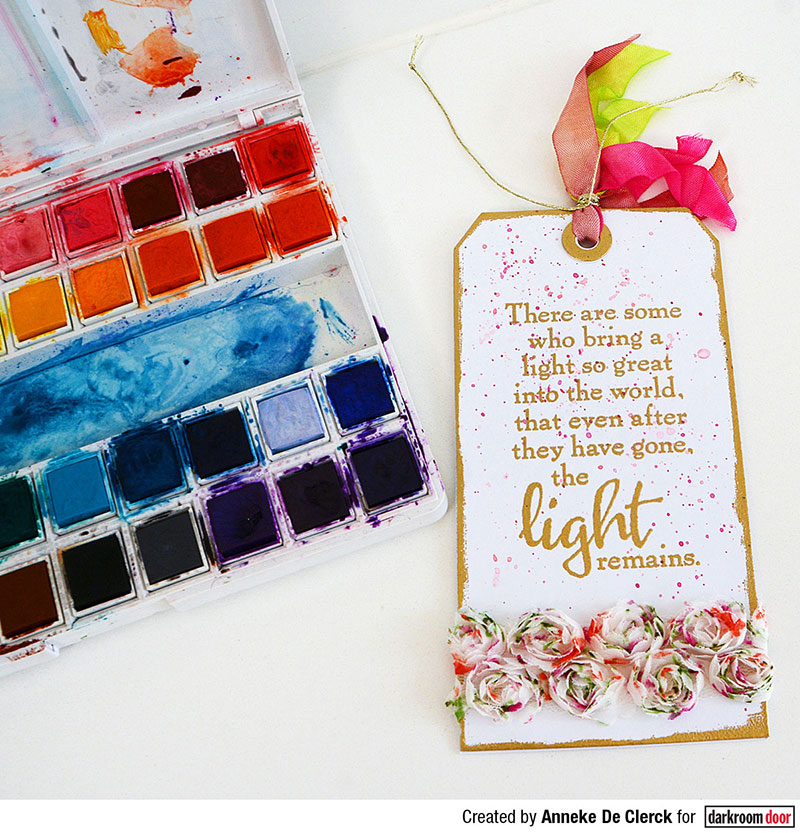 There are some
who bring a
light so great
into the world,
that even after
they have gone,
the
light
remains.
Created by Anneke De Clerck for darkroomdoor